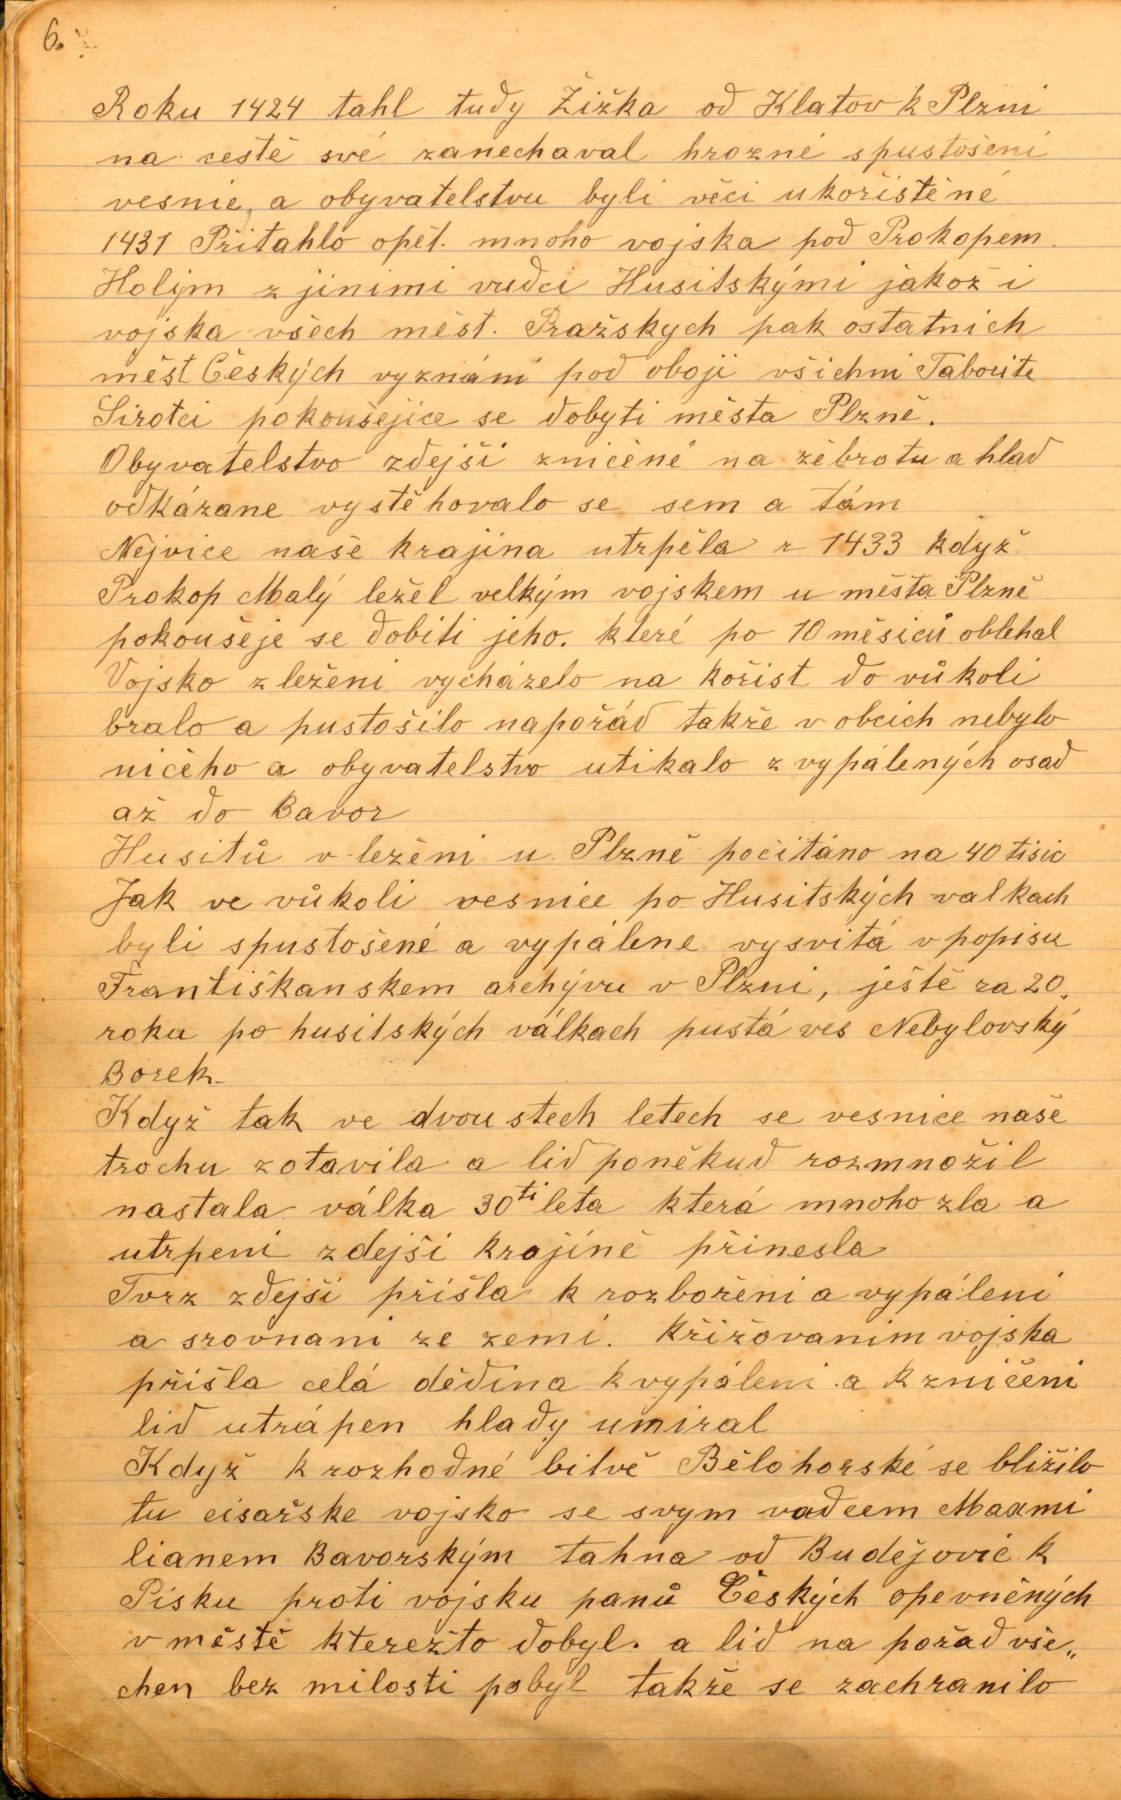 6.
Roku 1424 tahl tudy Žižka od Klatov k Plzni
na cestě své zanechaval hrozné spustošení
vesnic, a obyvatelstvu byli věci ukořistěné
1431 Přitahlo opět. mnoho vojska pod Prokopem
Holým z jinimi vudci Husitskými jakož i
vojska všech měst. Pražskych pak ostatnich
měst Českých vyznání pod oboji všichni Taborite
Sirotci pokoušejice se dobyti města Plzně.
Obyvatelstvo zdejší zničéné na žebrotu a hlad
odkázane vystěhovalo se sem a tám
Nejvice naše krajina utrpěla r 1433 když
Prokop Malý ležel velkým vojskem u města Plzně
pokoušeje se dobiti jeho. které po 10 měsiců oblehal
Vojsko z leženi vycházelo na kořist do vůkoli
bralo a pustošilo napořád takže v obcich nebylo
ničeho a obyvatelstvo utikalo z vypálených osad
až do Bavor
Husitů v ležéni u Plzně počitáno na 40 tisic
Jak ve vůkoli vesnice po Husitských valkach
byli spustošené a vypálene vysvitá v popisu
Františkanskem archývu v Plzni, ještě za 20.
roku po husitských válkach pustá ves Nebylovský
Borek.
Když tak ve dvou stech letech se vesnice naše
trochu zotavila a lid poněkud rozmnožil
nastala válka 30ti leta která mnoho zla a
utrpeni zdejši krajině přinesla
Tvrz zdejši přišla k rozbořeni a vypáleni
a srovnani ze zemi. Křižovanim vojska
přišla celá dědina k vypáleni a k zničeni
lid utrápen hlady umiral
Když k rozhodné bitvě Bělohorské se bližilo
tu cisařske vojsko se svym vadcem Maxmi
lianem Bavorským tahna od Budějovic k
Pisku proti vojsku panů Českých opevněných
v městě kterežto dobyl. a lid na pořad vše„
chen bez milosti pobyl takže se zachranilo